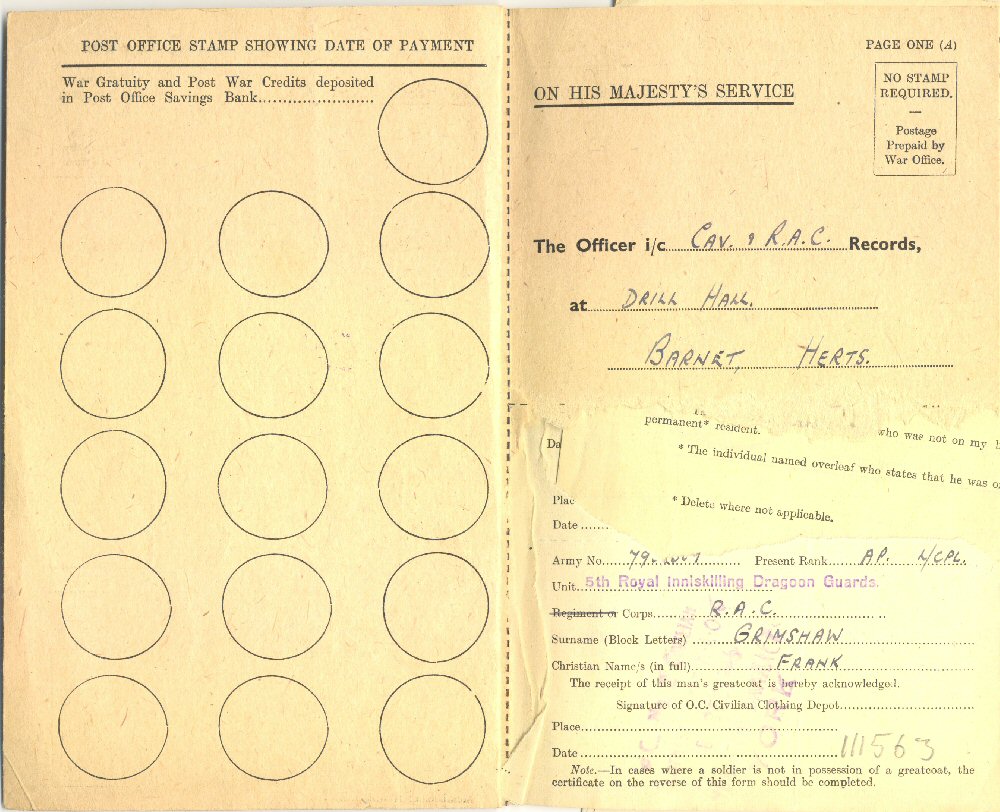 POST OFFICE STAMP SHOWING DATE OF PAYMENT
War Gratuity and Post War Credits deposited
in Post Office Savings Bank........................
PAGE ONE (A)
ON HIS MAJESTY'S SERVICE
NO STAMP
REQUIRED.
—
Postage
Prepaid by
War Office.
The Officer i/c CAV. & R.A.C. Records,
at DRILL HALL.
BARNET, HERTS.
permanent* resident. who was not on my
* The individual named overleaf who states that he was
* Delete where not applicable.
Da
Plac
Date .......
Army No. 79 Present Rank AP. L/CPL.
Unit 5th Royal Inniskilling Dragoon Guards.
Regiment or Corps R.A.C.
Surname (Block Letters) GRIMSHAW
Christian Name/s (in full) FRANK
The receipt of this man's greatcoat is hereby acknowledged.
Signature of O.C. Civilian Clothing Depot
Place
Date 111563
Note.—In cases where a soldier is not in possession of a greatcoat, the
certificate on the reverse of this form should be completed.